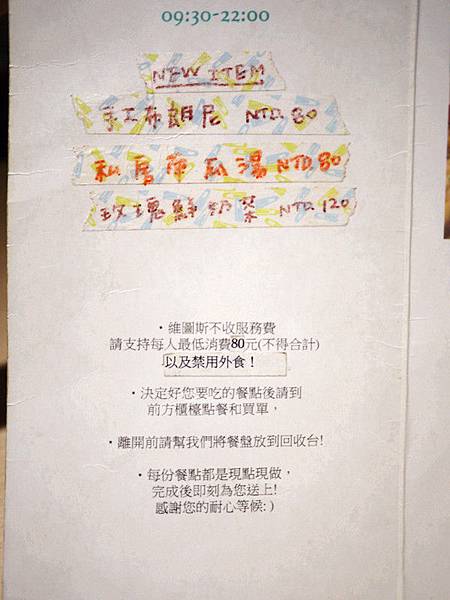 09:30-22:00
NEW ITEM
手工布朗尼 NTD. 80
私房南瓜湯 NTD 80
玫瑰鮮奶茶 NTD. 120
・維圖斯不收服務費
請支持每人最低消費80元(不得合計)
以及禁用外食！
・決定好您要吃的餐點後請到
前方櫃檯點餐和買單，
・離開前請幫我們將餐盤放到回收台!
・每份餐點都是現點現做，
完成後即刻為您送上!
感謝您的耐心等候: )